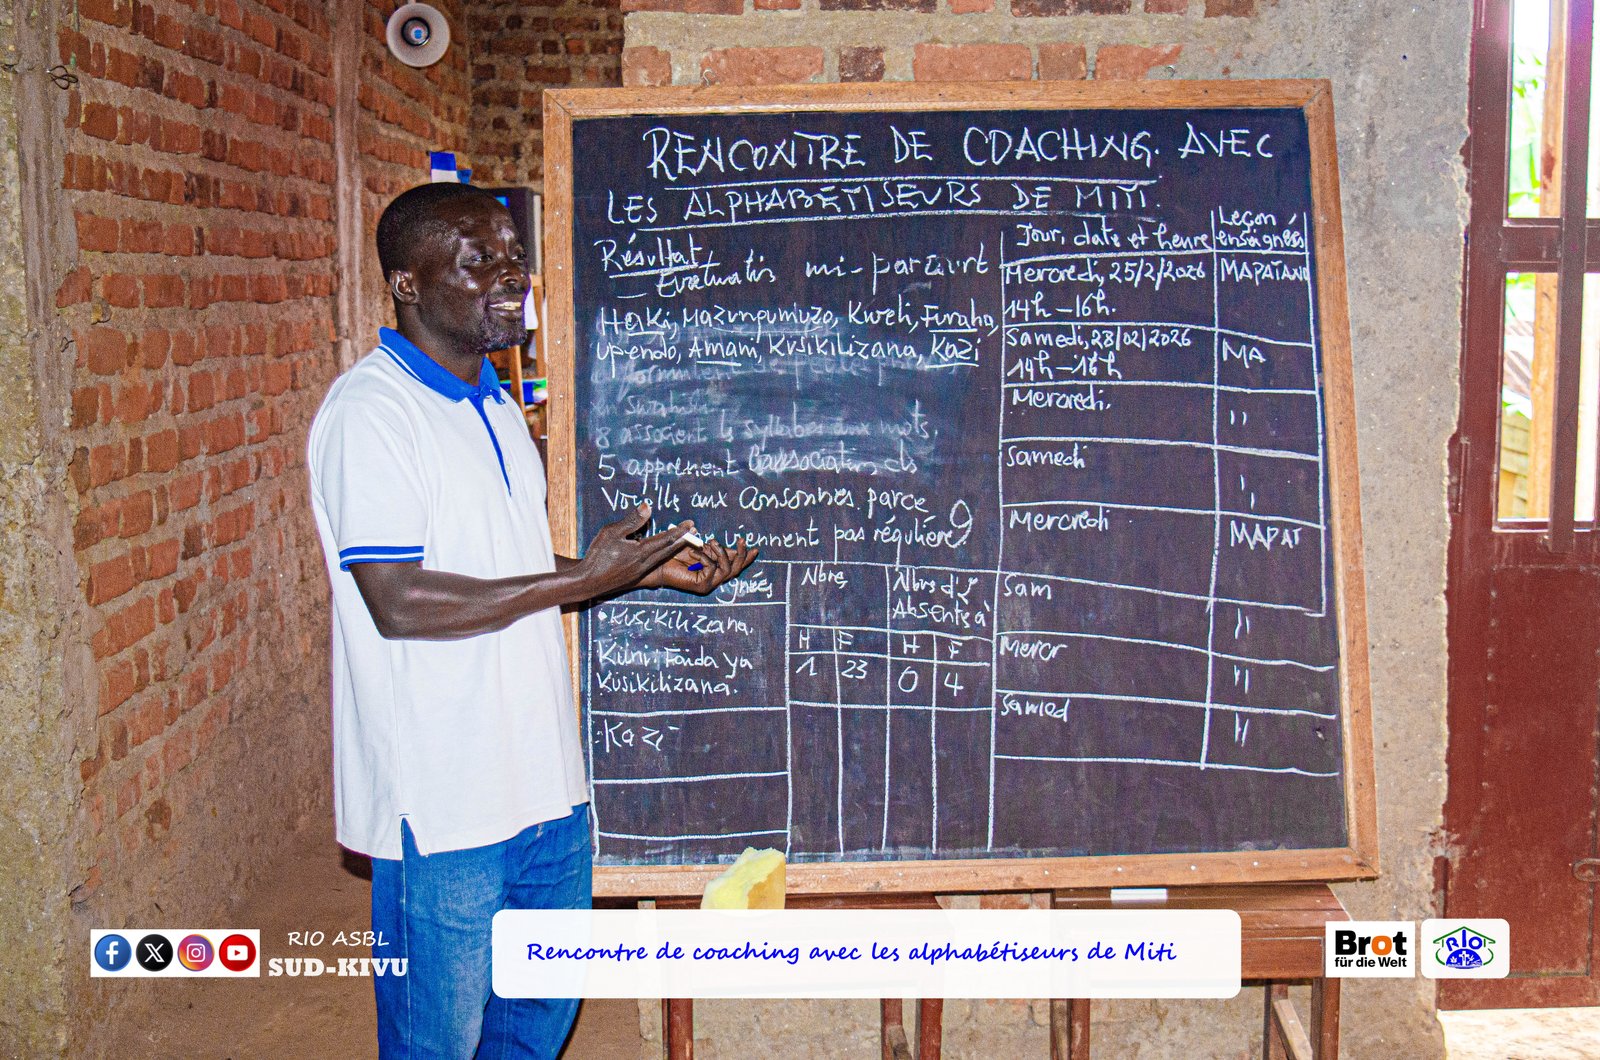 RENCONTRE DE COACHING. AVEC
LES ALPHABÉTISEURS DE MITI.
Résultat
– Evaluatis mi-parcurt
Haki, Mazungumuzo, Kweli, Furaha,
Upendo, Amani, Kusikilizana, Kazi
en Swahili
8 associent ls syllabes aux mots.
5 apprenent l'association, ds
Voyelle aux Consonnes parce
viennent pas régulière
gnées
Nbre
Nbrs d'
Absents à
H F H F
• Kusikilizana.
Kilni: Faida ya
Kusikilizana.
1 23 0 4
: Kazi
Jour, date et heure
Leçon
enseignées
Mercredi, 25/2/2026
14h – 16h.
MAPATANO
Samedi, 28/02/2026
14h – 16h
MA
Mercredi.
"
Samedi
"
Mercredi
MAPAT
Sam
"
Mercr
"
Samed
"
RIO ASBL
SUD-KIVU
Rencontre de coaching avec les alphabétiseurs de Miti
Brot
für die Welt
RIO